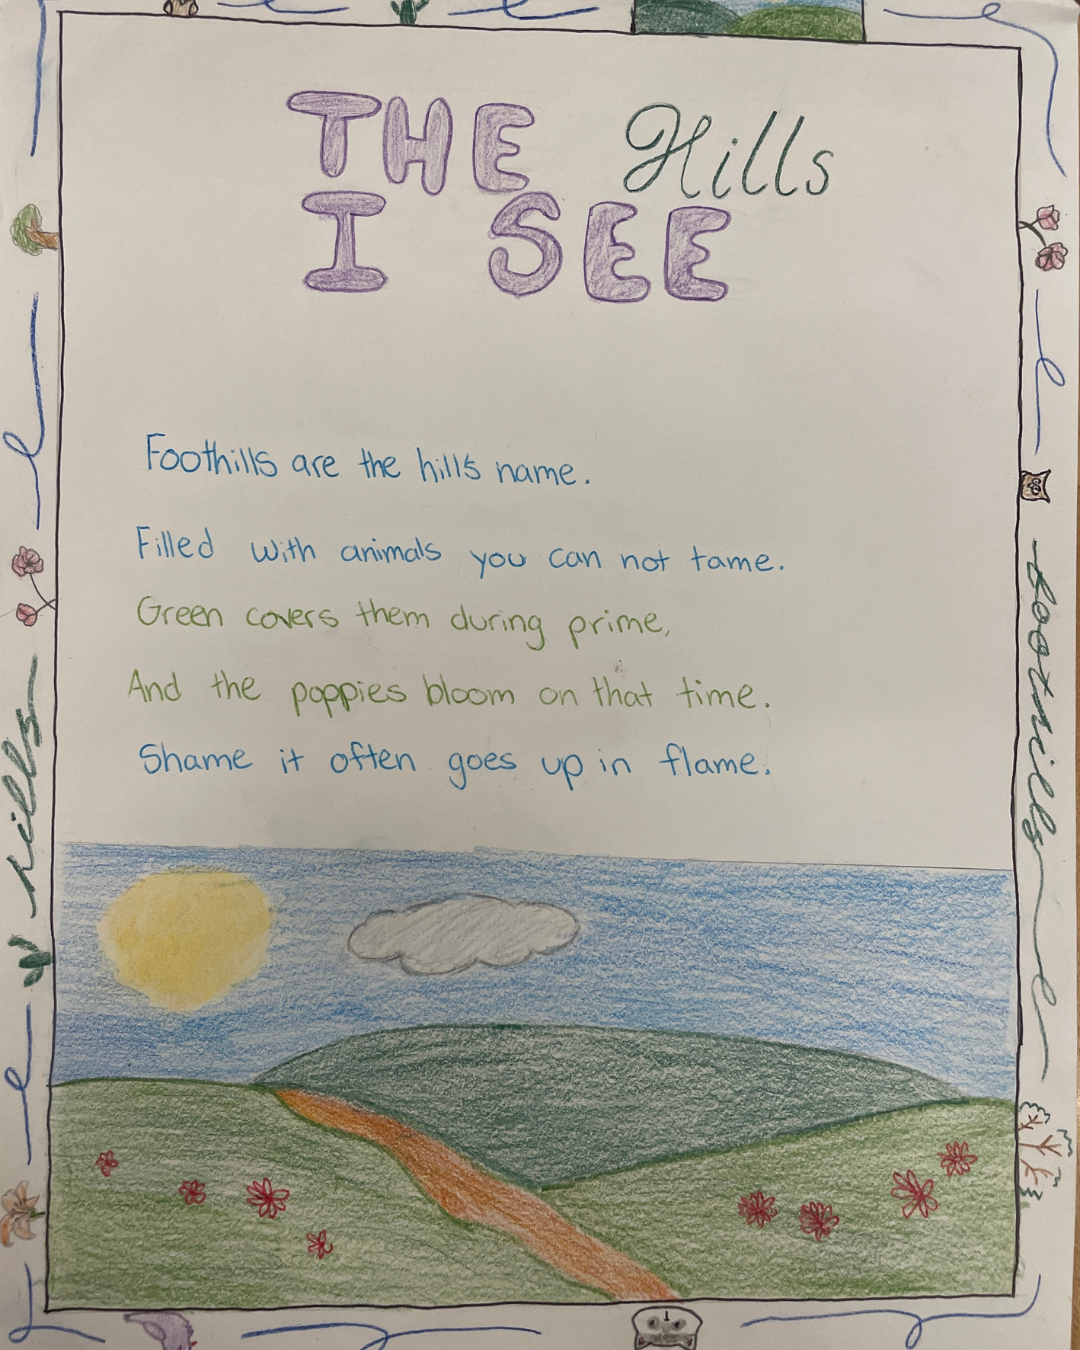 THE Hills
I SEE
Foothills are the hill's name.
Filled with animals you can not tame.
Green covers them during prime,
And the poppies bloom on that time.
Shame it often goes up in flame.
hills
foothills